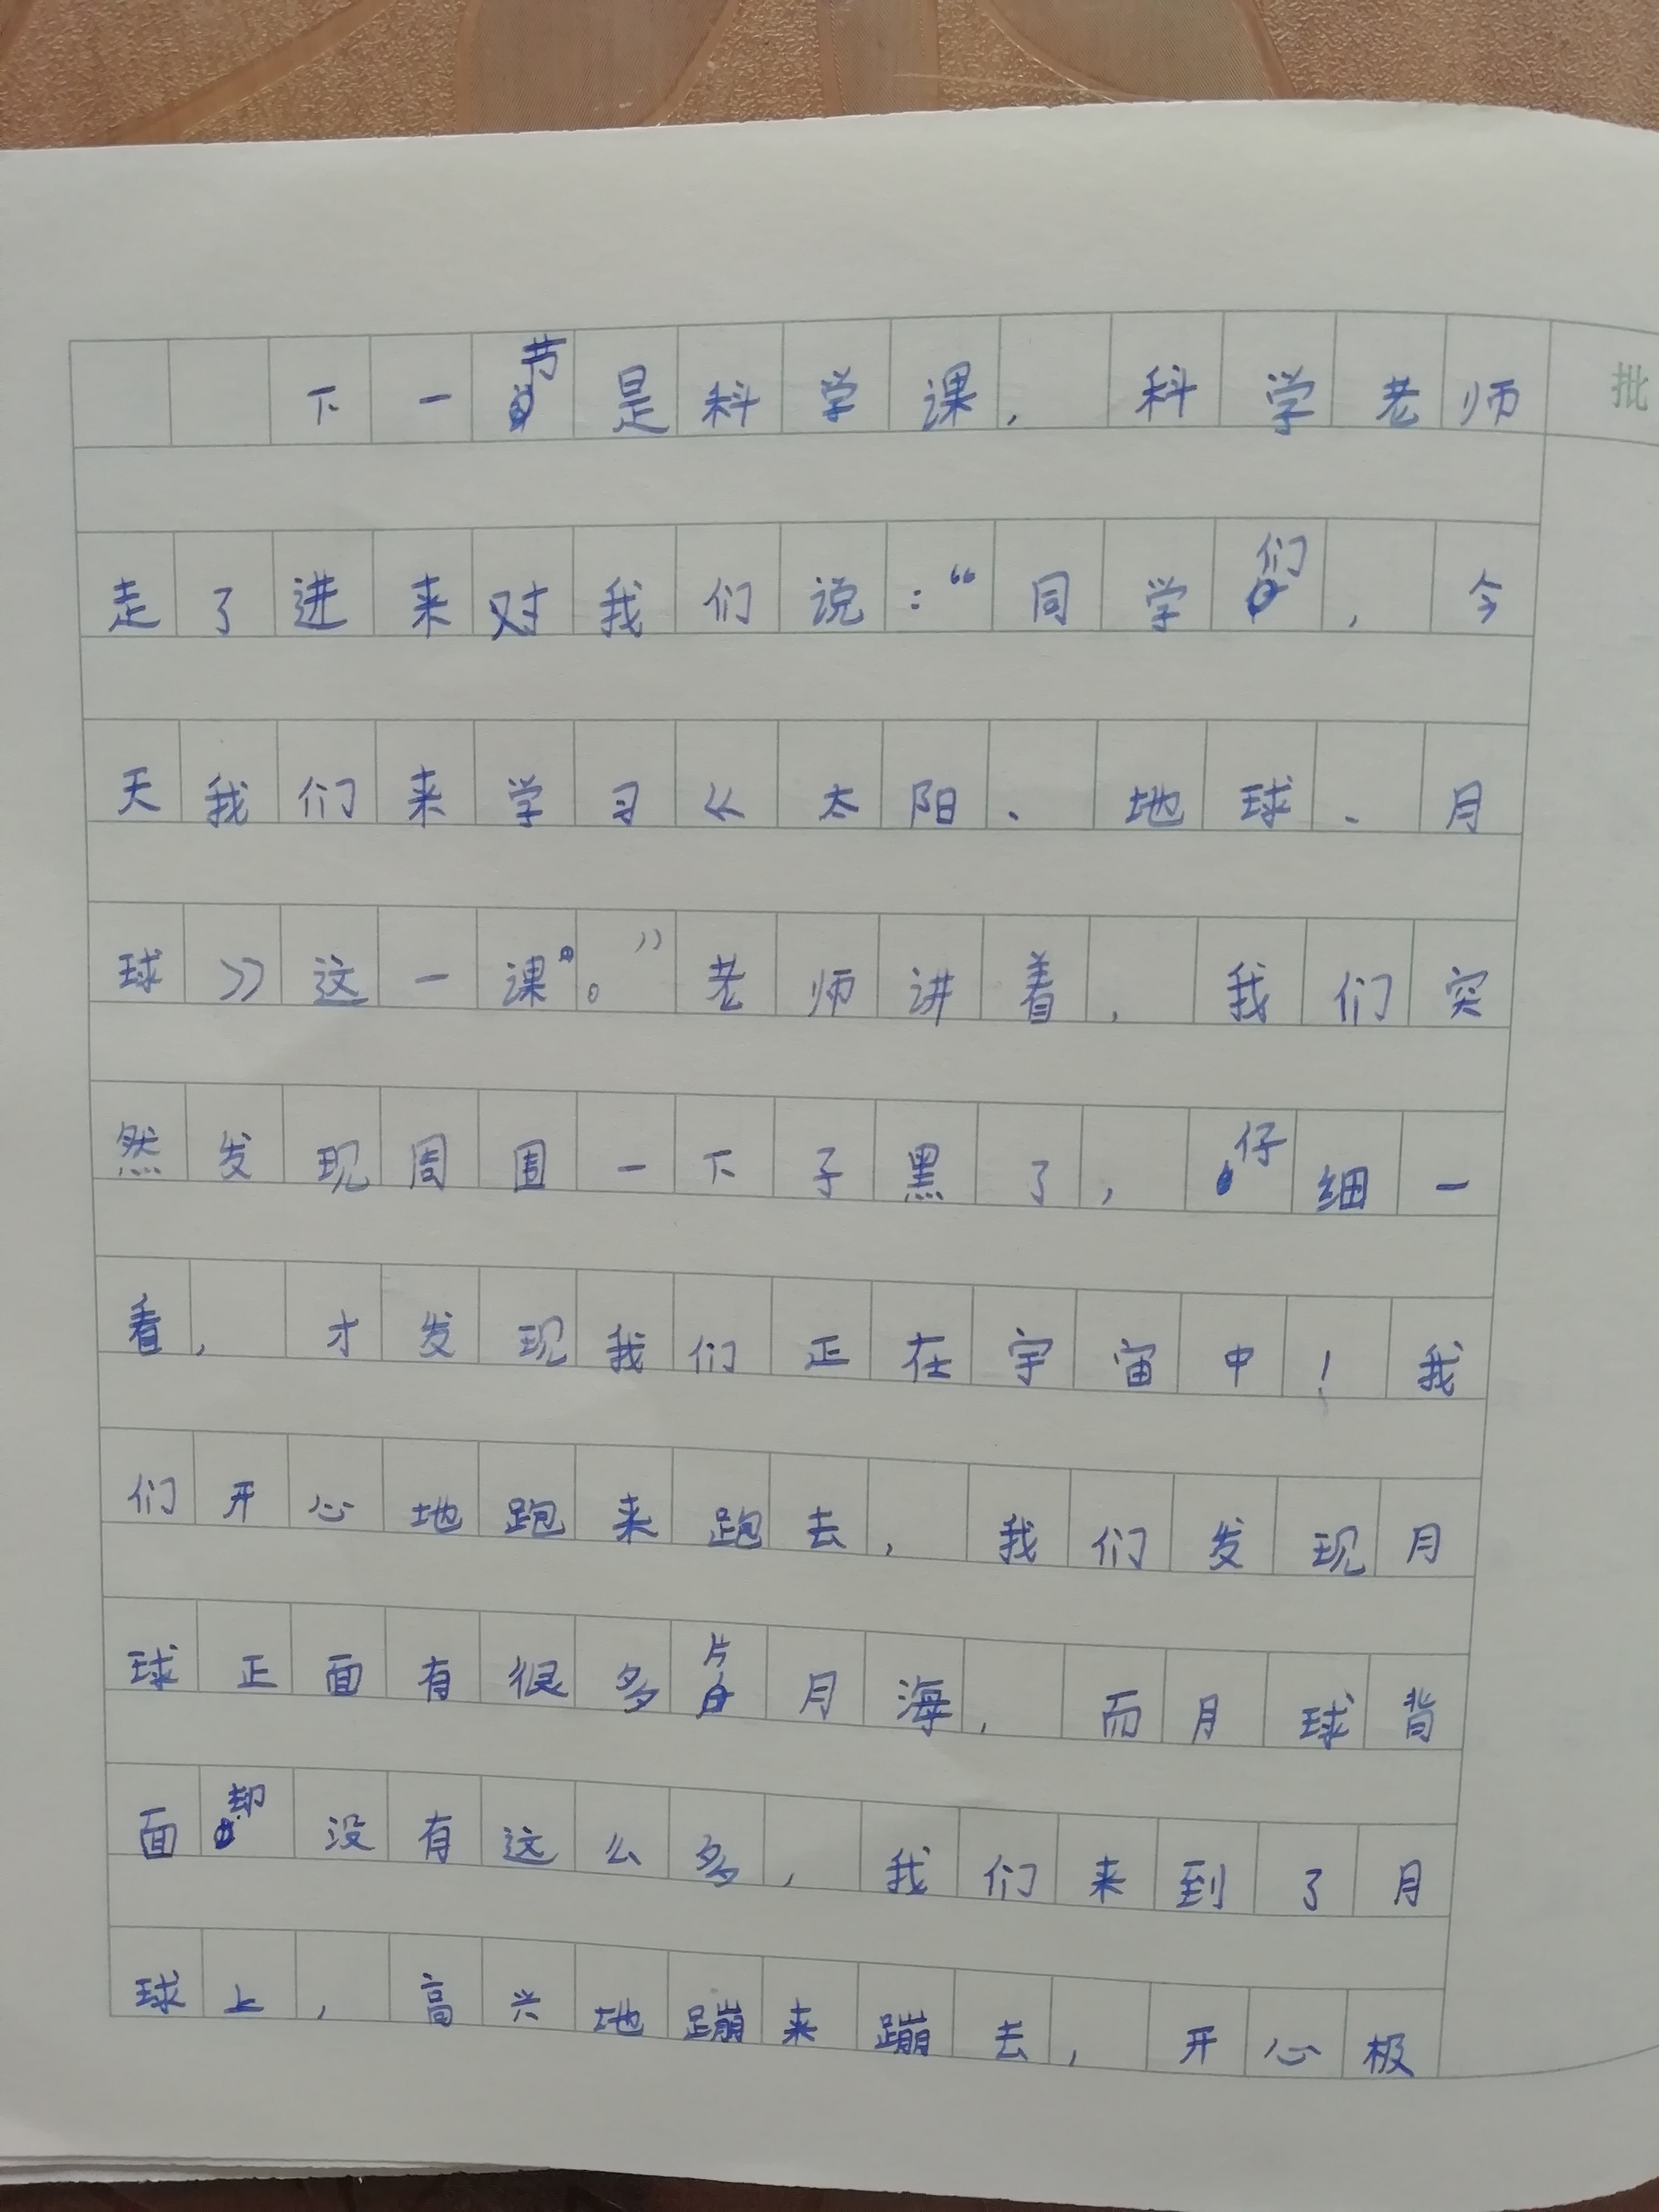 下一节是科学课，科学老师
批
走了进来对我们说：“同学们，今
天我们来学习《太阳、地球、月
球》这一课。”老师讲着，我们突
然发现周围一下子黑了，仔细一
看，才发现我们正在宇宙中！我
们开心地跑来跑去，我们发现月
球正面有很多片月海，而月球背
面却没有这么多，我们来到了月
球上，高兴地蹦来蹦去，开心极